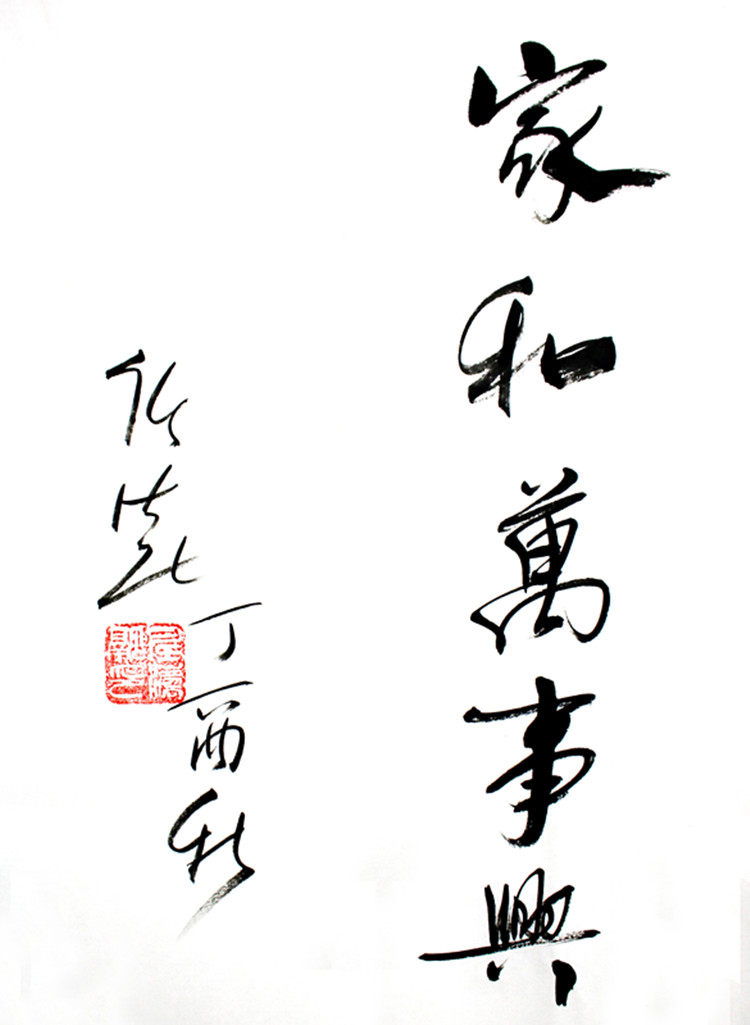 家和萬事興
丁酉秋